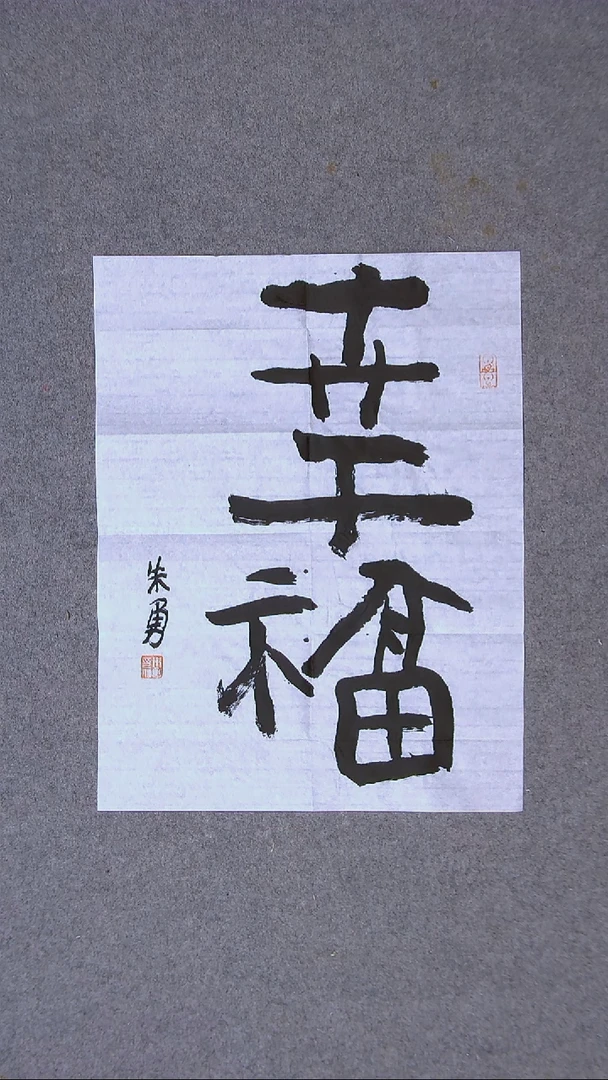 幸福
朱勇